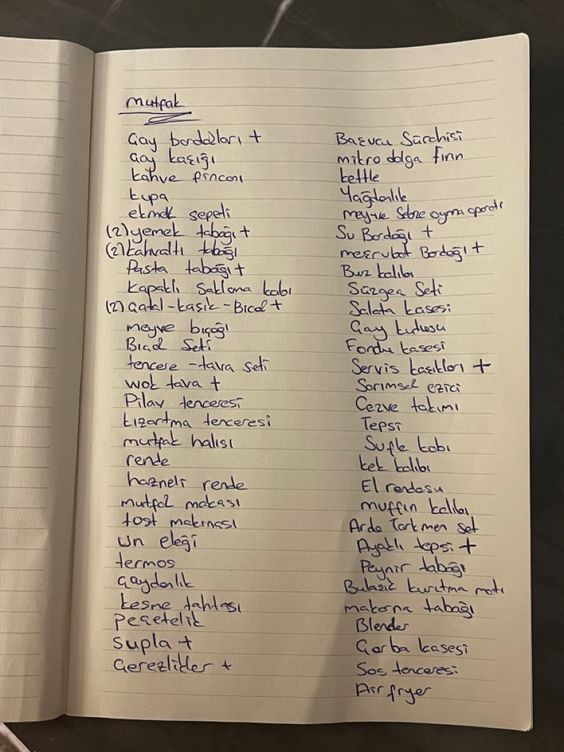 mutpak
Çay bardakları +
Çay kaşığı
kahve fincanı
kupa
ekmek sepeti
(2) yemek tabağı +
(2) kahvaltı tabağı
Pasta tabağı +
Kapaklı Saklama kabı
(2) Çatal-kaşık-Bıçak +
meyve bıçağı
Bıçak Seti
tencere-tava seti
wok tava +
Pilav tenceresi
kızartma tenceresi
mutfak halısı
rende
hazneli rende
mutfak makası
tost makinası
un eleği
termos
Çaydanlık
kesme tahtası
peçetelik
supla +
Çerezlikler +
Başucu Sürahisi
mikro dalga fırın
kettle
Yağdanlık
meyve Sebze oyma aparatı
Su Bardağı +
meşrubat Bardağı +
Buz kalıbı
Süzgeç Seti
Salata kasesi
Çay kutusu
Fondü kasesi
Servis kaşıkları +
Sarımsak ezici
Cezve takımı
Tepsi
Sufle kabı
kek kalıbı
El rendesi
muffin kalıbı
Arda Türkmen set
Ayaklı tepsi +
Peynir tabağı
Bulaşık kurutma matı
makarna tabağı
Blender
Çorba kasesi
Sos tenceresi
Airfryer